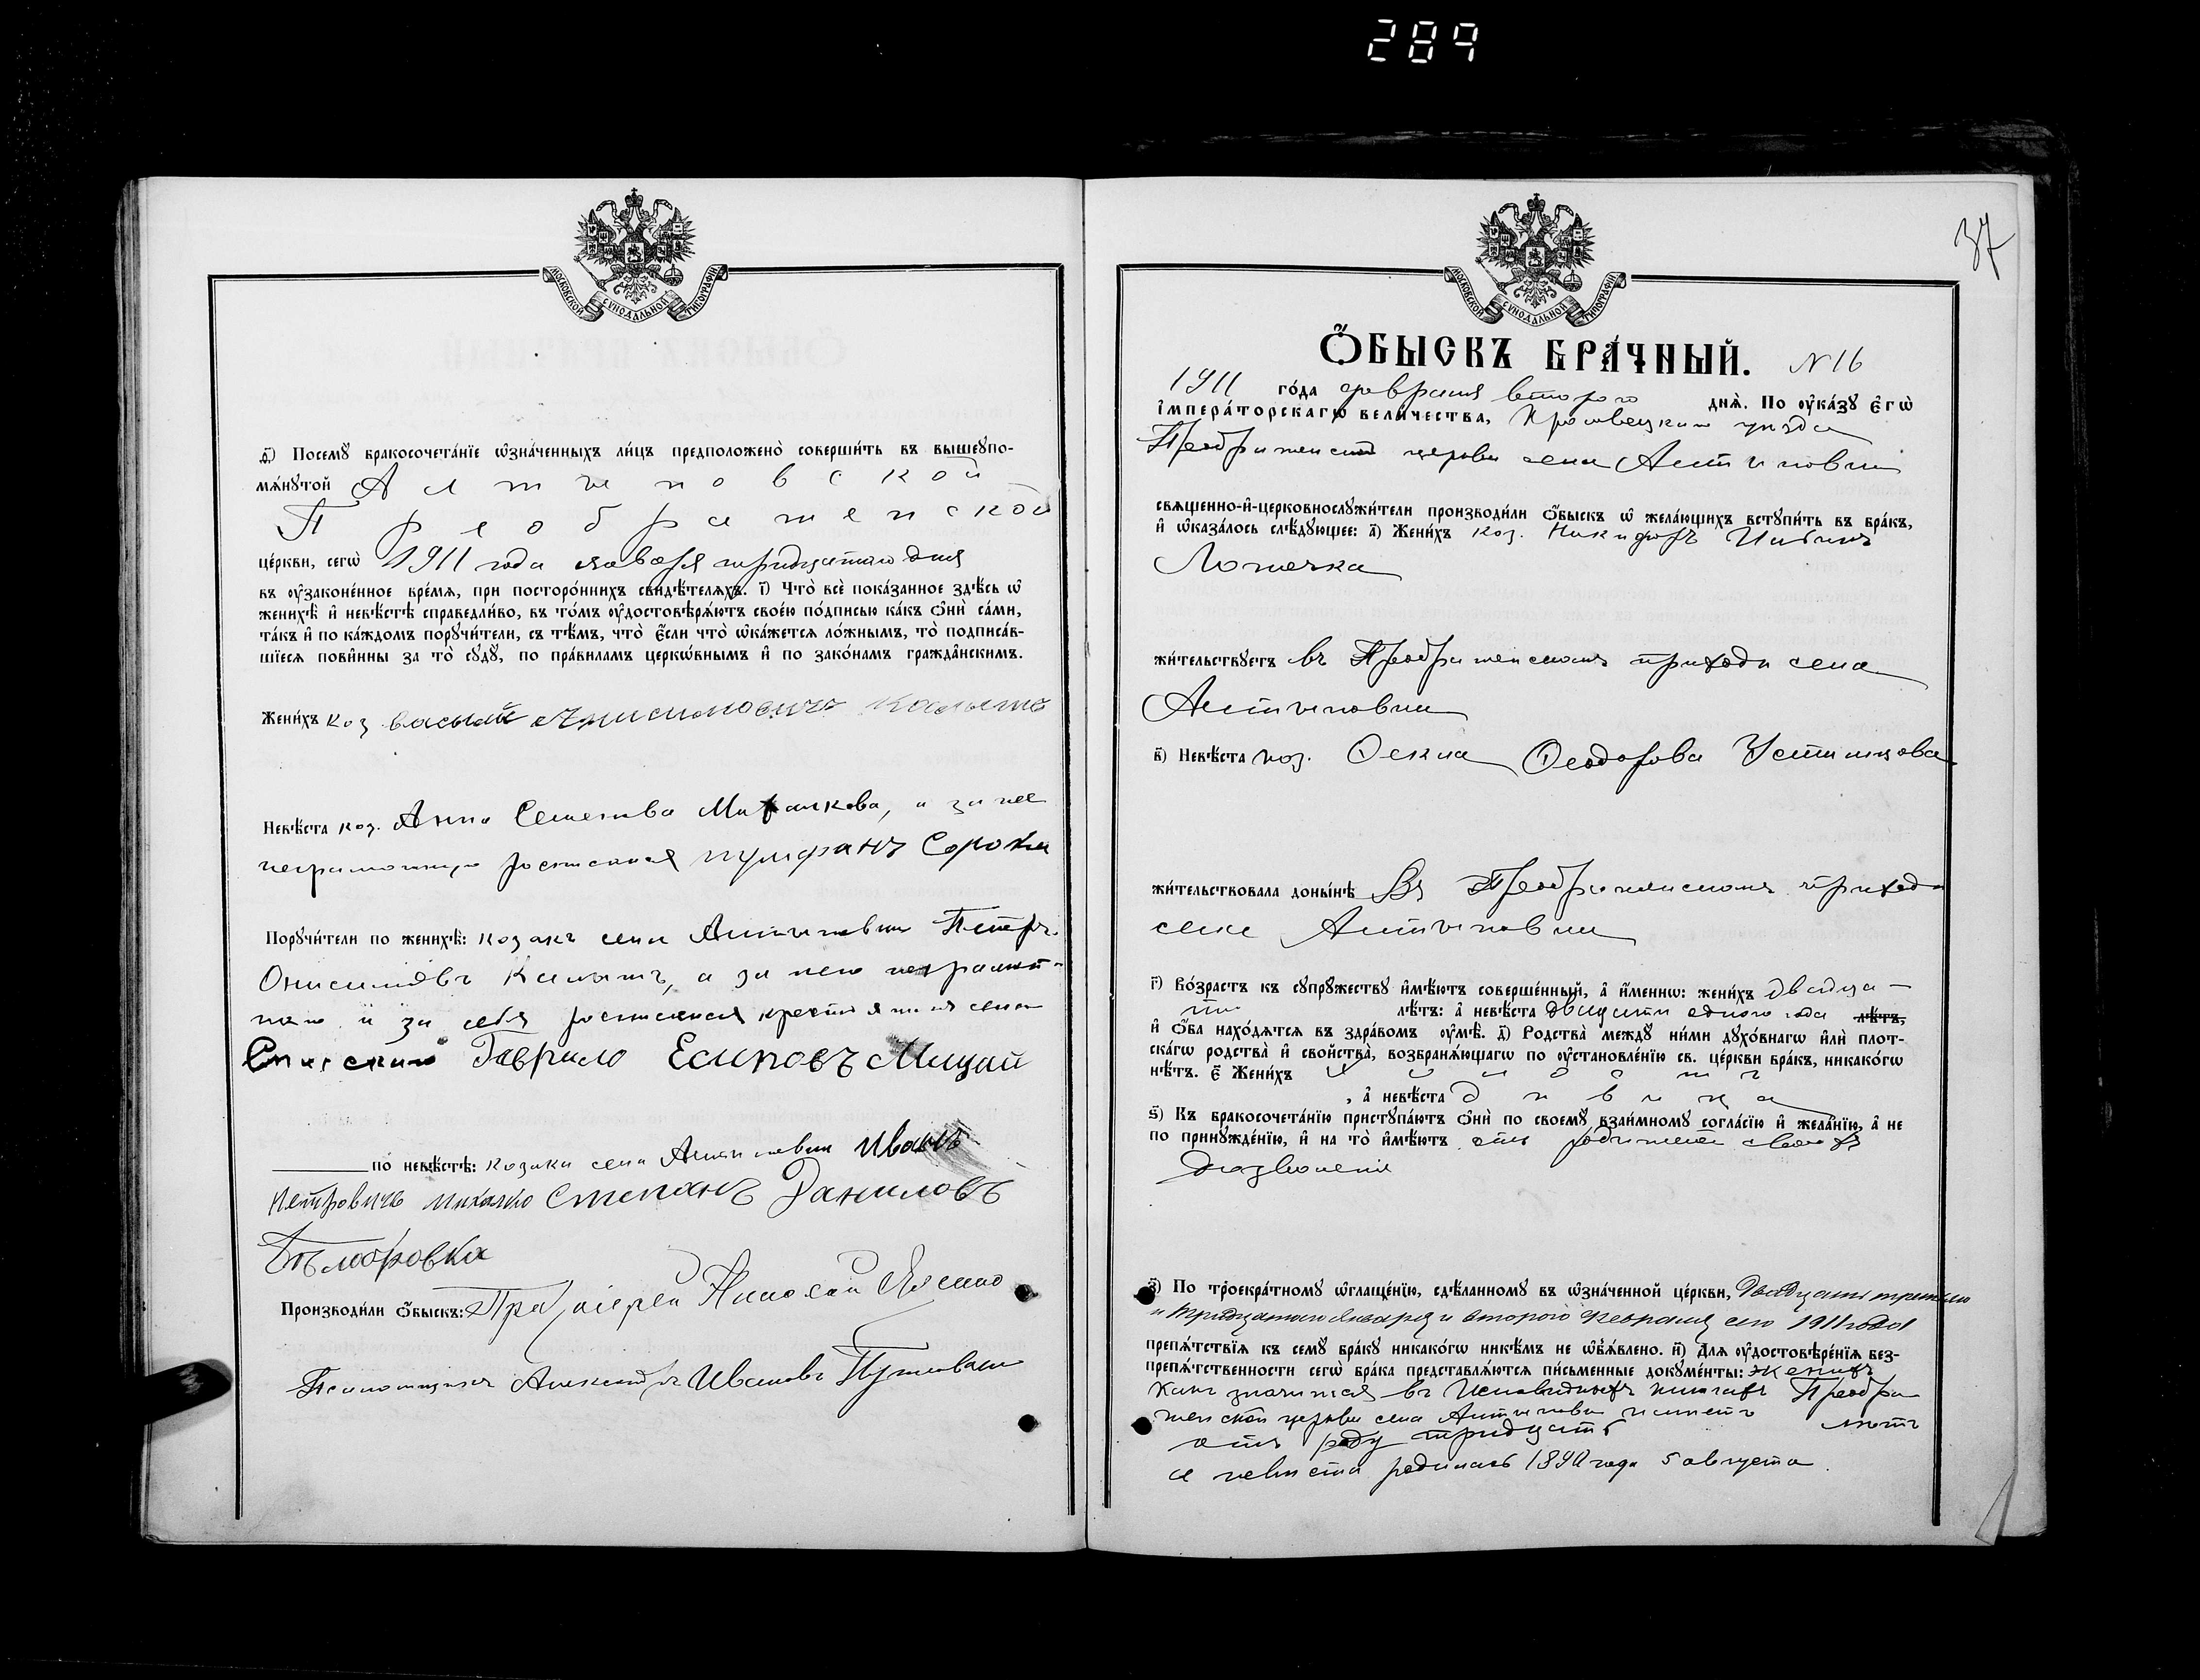 289
МОСКОВСКОЙ СѴНОДАЛЬНОЙ ТИПОГРАФІИ
ѳ҃) Посемꙋ̀ бракосочета́нїе ѡ҆зна́ченныхъ ли́цъ предположено̀ соверши́ть въ вышеꙋпо-
мѧ́нꙋтой Алтыновской
Преображенской
це́ркви, сегѡ̀ 1911 года января тридцатаго дня
въ ᲂу҆зако́ненное вре́мѧ, при посторо́ннихъ свидѣ́телѧхъ. і҃) Что̀ всѐ пока́занное здѣ́сь ѡ҆
женихѣ̀ и҆ невѣ́стѣ справедли́во, въ то́мъ ᲂу҆достовѣрѧ́ютъ свое́ю по́дписью ка́къ ѻ҆нѝ са́ми,
та́къ и҆ по ка́ждомъ порꙋчи́тели, съ тѣ́мъ, что̀ є҆́сли что̀ ѡ҆ка́жетсѧ ло́жнымъ, то̀ подписа́в-
шїесѧ пови́нны за то̀ сꙋдꙋ̀, по пра́виламъ церкѡ́внымъ и҆ по зако́намъ гражда́нскимъ.
Жени́хъ коз Василий Онисимовичъ Калышъ
Невѣ́ста коз. Анна Семенова Михалкова, а за нее
неграмотную росписался Сорока
Порꙋчи́тели по женихѣ̀: козакъ села Алтыновки Петръ
Онисимовъ Калышъ, а за него неграмот-
наго и за себя росписался крестьянинъ села
Гаврило Есиповъ Мицай
по невѣ́стѣ: козаки села Алтыновки Иванъ
Петровичъ Михалко Степанъ Даниловъ
Производи́ли ѻ҆́быскъ: Протоіерей Николай Ясенко
Псаломщикъ Александръ Ивановъ
37
МОСКОВСКОЙ СѴНОДАЛЬНОЙ ТИПОГРАФІИ
Ѻ҆́БЫСКЪ БРА́ЧНЫЙ. N 16
1911 го́да февраля второго днѧ̀. По ᲂу҆ка́зꙋ є҆гѡ̀
і҆мпера́торскагѡ вели́чества, Кролевецкаго уѣзда
Преображенской церкви села Алтыновки
свѧще́нно-и҆-церковнослꙋжи́тели производи́ли ѻ҆́быскъ ѡ҆ жела́ющихъ встꙋпи́ть въ бра́къ,
и҆ ѡ҆каза́лось слѣ́дꙋющее: а҃) Жени́хъ коз. Никифоръ
жи́тельствꙋетъ въ Преображенскомъ приходѣ села
Алтыновки
в҃) Невѣ́ста коз. Ѳекла Ѳеодорова Устимцова
жи́тельствовала доны́нѣ Въ Преображенскомъ приходѣ
селе Алтыновки
г҃) Во́зрастъ къ сꙋпрꙋ́жествꙋ и҆мѣ́ютъ соверше́нный, а҆ и҆́меннѡ: жени́хъ двадца-
ти лѣ́тъ: а҆ невѣ́ста двадцати одного года лѣ́тъ,
и҆ ѻ҆́ба нахо́дѧтсѧ въ здра́вомъ ᲂу҆мѣ̀. д҃) Родства̀ междꙋ̀ ни́ми дꙋхо́внагѡ и҆лѝ плот-
ска́гѡ родства̀ и҆ свойства̀, возбранѧ́ющагѡ по ᲂу҆становле́нїю св. це́ркви бра́къ, никако́гѡ
нѣ́тъ. є҃ Жени́хъ холостъ
, а҆ невѣ́ста дѣвица
ѕ҃) Къ бракосочета́нїю пристꙋпа́ютъ ѻ҆нѝ по своемꙋ̀ взаи́мномꙋ согла́сїю и҆ жела́нїю, а҆ не
по принꙋжде́нїю, и҆ на то̀ и҆мѣ́ютъ отъ родителей своихъ
дозволенія
з҃) По троекра́тномꙋ ѡ҆глаше́нїю, сдѣ́ланномꙋ въ ѡ҆зна́ченной це́ркви, двадцать третьяго
и тридцатаго января и второго февраля сего 1911 года
препѧ́тствїѧ къ семꙋ̀ бра́кꙋ никако́гѡ никѣ́мъ не ѡ҆б̾ѧ́влено. и҃) Длѧ ᲂу҆достовѣре́нїѧ без-
препѧ́тственности сегѡ̀ бра́ка представлѧ́ютсѧ пи́сьменные докꙋме́нты: Женихъ
какъ значится въ Исповѣдныхъ книгахъ Преобра
женской церкви села Алтыновки имѣетъ лѣтъ
отъ роду тридцать
а невѣста родилась 1890 года 5 августа.